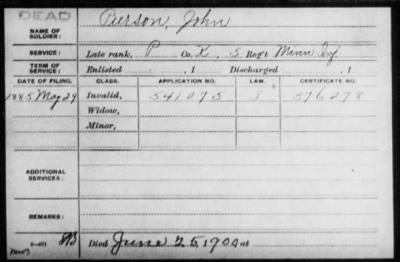 DEAD
NAME OF SOLDIER: Pierson, John
SERVICE: Late rank, P Co. K, 5 Reg't Minn Inf
TERM OF SERVICE: Enlisted , 1 Discharged , 1
DATE OF FILING. CLASS. APPLICATION NO. LAW. CERTIFICATE NO.
1885 May 29 Invalid, 541075 J 376278
Widow,
Minor,
ADDITIONAL SERVICES:
REMARKS:
Died June 25, 1900 at